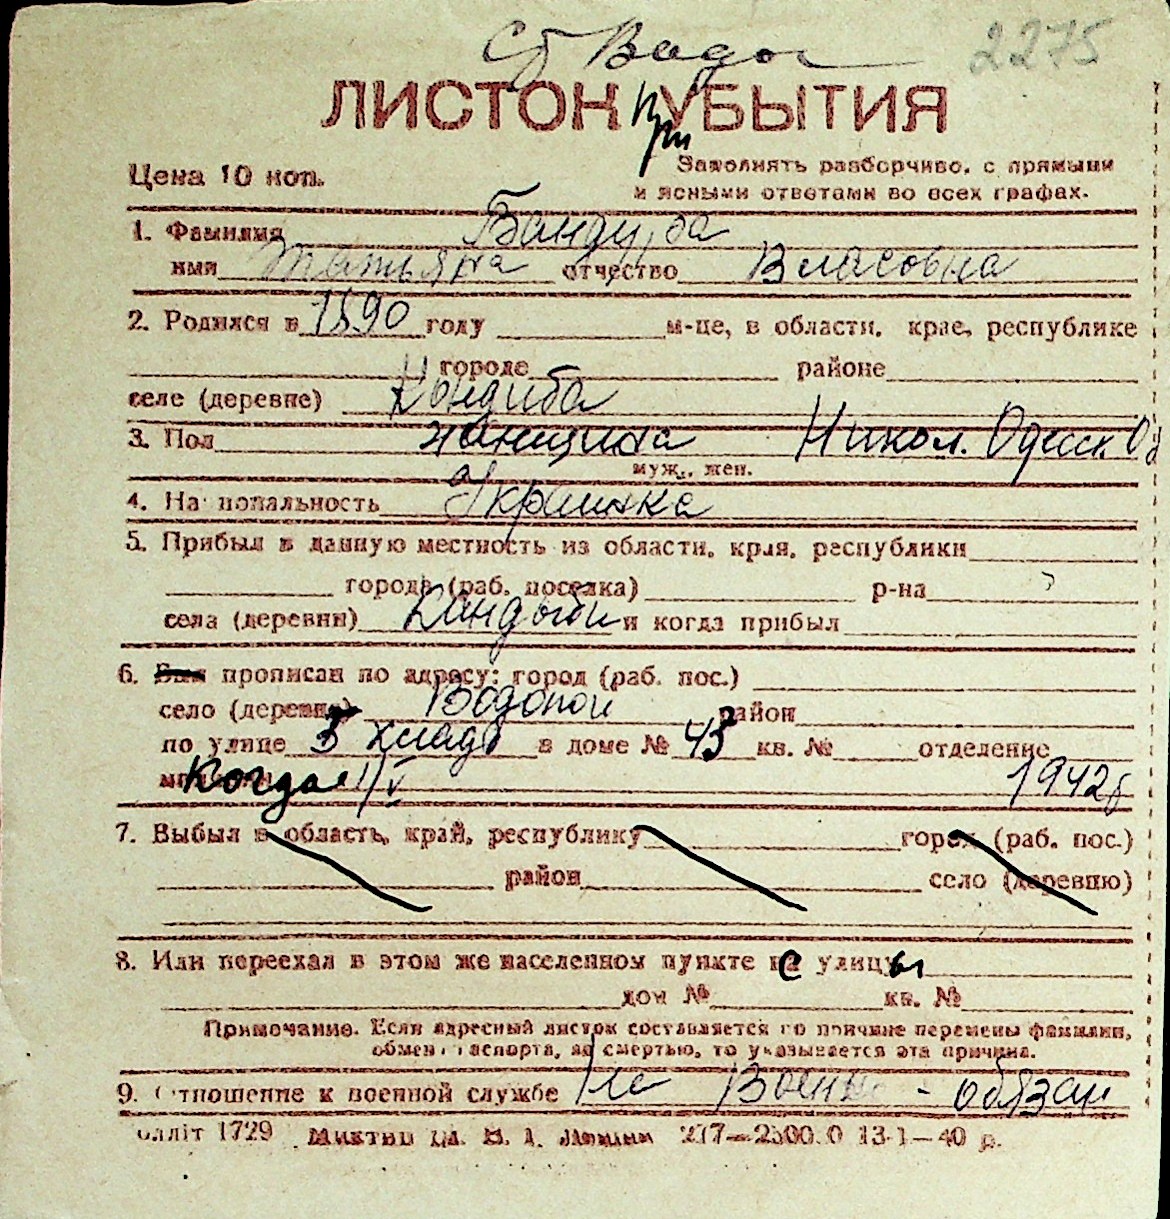 Ст Водоп
2275
ЛИСТОК при УБЫТИЯ
Цена 10 коп.
Заполнять разборчиво, с прямыми
и ясными ответами во всех графах.
1. Фамилия Бандура
имя Татьяна отчество Власовна
2. Родился в 1890 году м-це, в области, крае, республике
городе районе
селе (деревне) Кандиба
3. Пол женщина Никол. Одесск. Об
муж., жен.
4. На иональность Украинка
5. Прибыл в данную местность из области, края, республики
города (раб. поселка) р-на
села (деревни) Кандыби и когда прибыл
6. Был прописан по адресу: город (раб. пос.)
село (деревня) Водопой район
по улице 3 Кладб в доме № 43 кв. № отделение
Когда 1/V 1942г
7. Выбыл в область, край, республику город (раб. пос.)
район село (деревню)
8. Или переехал в этом же населенном пункте с улицы
дом № кв. №
Примечание. Если адресный листок составляется по причине перемены фамилии,
обмен паспорта, за смертью, то указывается эта причина.
9. Отношение к военной службе Не Военно-обязан
олліт 1729 277—2500.0 13-1—40 р.